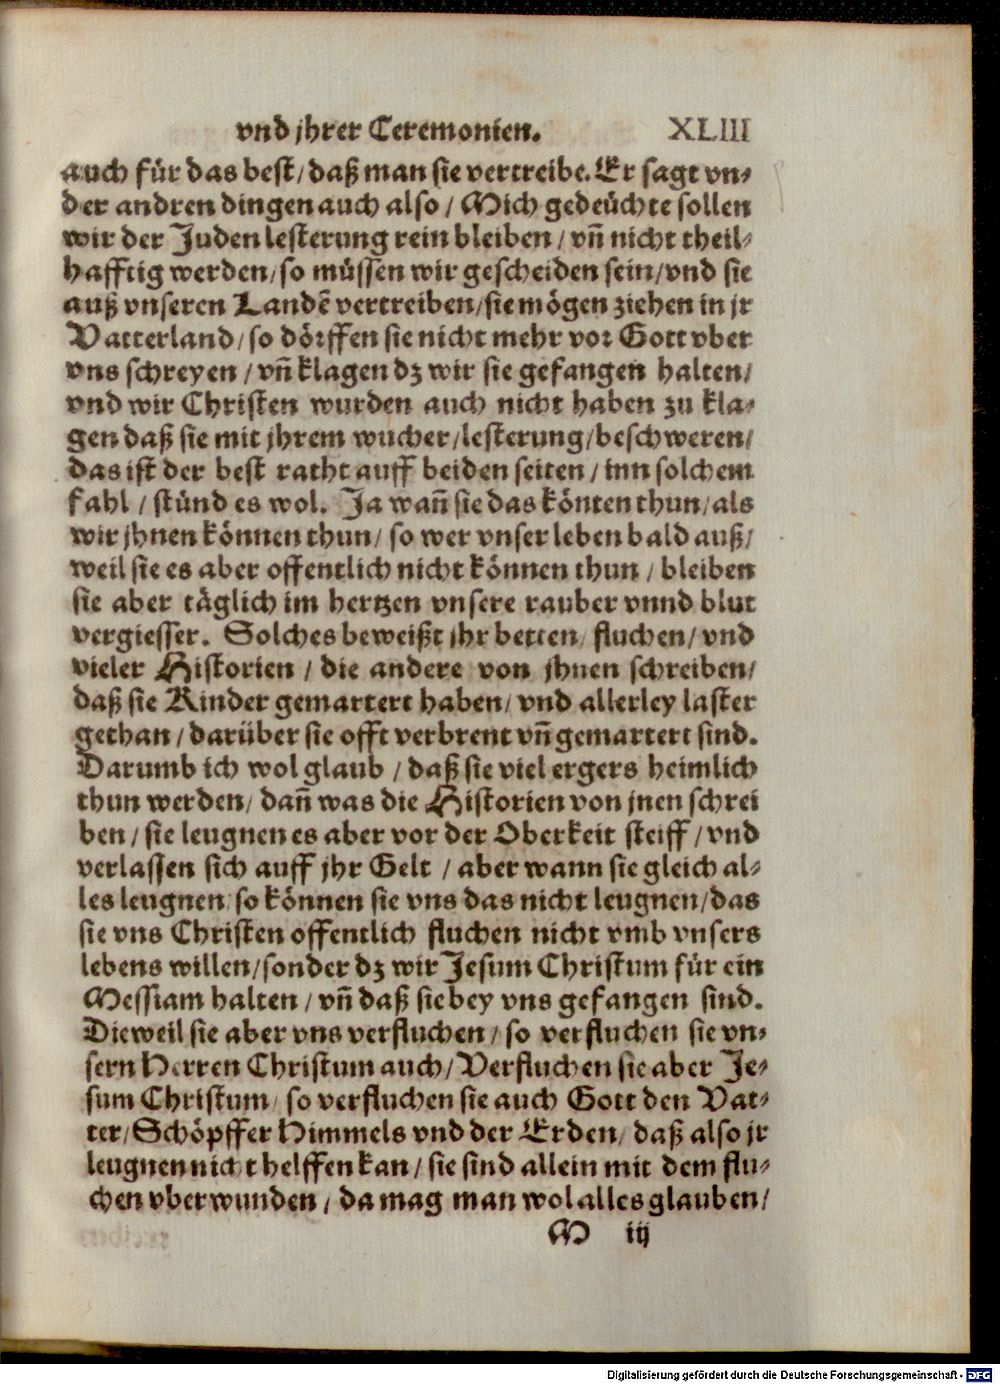 vnd jhrer Ceremonien. XLIII
auch für das best/ daß man sie vertreibe. Er sagt vn⸗
der andren dingen auch also / Mich gedeüchte sollen
wir der Juden lesterung rein bleiben / vñ nicht theil⸗
hafftig werden/ so müssen wir gescheiden sein/ vnd sie
auß vnseren Landē vertreiben/ sie mögen ziehen in jr
Vatterland/ so dörffen sie nicht mehr vor Gott vber
vns schreyen / vñ klagen dz wir sie gefangen halten/
vnd wir Christen wurden auch nicht haben zu kla⸗
gen daß sie mit jhrem wucher/ lesterung/ beschweren/
das ist der best ratht auff beiden seiten / inn solchem
fahl / stünd es wol. Ja wañ sie das könten thun/ als
wir jhnen können thun/ so wer vnser leben bald auß/
weil sie es aber offentlich nicht können thun / bleiben
sie aber täglich im hertzen vnsere rauber vnnd blut
vergiesser. Solches beweißt jhr betten/ fluchen/ vnd
vieler Historien / die andere von jhnen schreiben/
daß sie Kinder gemartert haben/ vnd allerley laster
gethan / darüber sie offt verbrent vñ gemartert sind.
Darumb ich wol glaub / daß sie viel ergers heimlich
thun werden/ dañ was die Historien von jnen schrei
ben / sie leugnen es aber vor der Oberkeit steiff / vnd
verlassen sich auff jhr Gelt / aber wann sie gleich al⸗
les leugnen/ so können sie vns das nicht leugnen/ das
sie vns Christen offentlich fluchen nicht vmb vnsers
lebens willen/ sonder dz wir Jesum Christum für ein
Messiam halten / vñ daß sie bey vns gefangen sind.
Dieweil sie aber vns verfluchen / so verfluchen sie vn⸗
sern Herren Christum auch/ Verfluchen sie aber Je⸗
sum Christum/ so verfluchen sie auch Gott den Vat⸗
ter/ Schöpffer Himmels vnd der Erden/ daß also jr
leugnen nicht helffen kan / sie sind allein mit dem flu⸗
chen vberwunden / da mag man wol alles glauben/
M iij
Digitalisierung gefördert durch die Deutsche Forschungsgemeinschaft - DFG